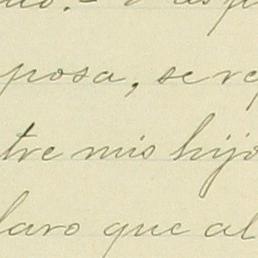 posa, se re
tre mis hijo
laro que al